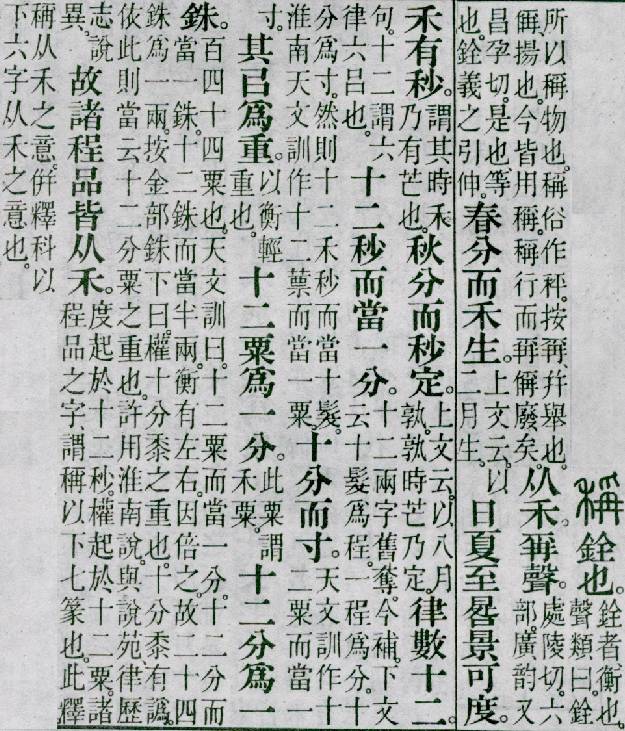 稱銓也。銓者、衡也。聲類曰。銓
所以稱物也。稱俗作秤。按爯、幷舉也。偁、揚也。今皆用稱。稱行而爯偁廢矣。从禾。爯聲。處陵切。六部。廣韵又
昌孕切。是也等也。銓義之引伸。春分而禾生。上文云。以二月生。日夏至晷景可度。
禾有秒。謂其時禾乃有芒也。秋分而秒定。上文云。以八月孰。孰時芒乃定。律數十二。
句。十二謂六律六呂也。十二秒而當一分。十二兩字舊奪。今補。下文云十髮爲程。一程爲分。十
分爲寸。然則十二禾秒而當十髮。淮南天文訓作十二蔈而當一粟。十分而寸。天文訓作十二粟而當一
寸。其㠯爲重。以衡輕重也。十二粟爲一分。此粟謂禾粟。十二分爲一
銖。百四十四粟也。天文訓曰。十二粟而當一分。十二分而當一銖。十二銖而當半兩。衡有左右。因倍之。故二十四
銖爲一兩。按金部銖下曰。權十分黍之重也。十分黍有譌。依此則當云十二分粟之重也。許用淮南說。與說苑、律歷
志說異。故諸程品皆从禾。度起於十二秒。權起於十二粟。諸程品之字謂稱以下七篆也。此釋
稱从禾之意。倂釋科以下六字从禾之意也。